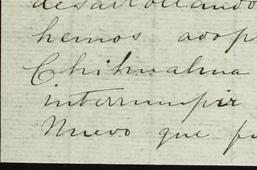 desarrollando
hemos adop
Chihuahua
interrumpir
Nuevo que pu